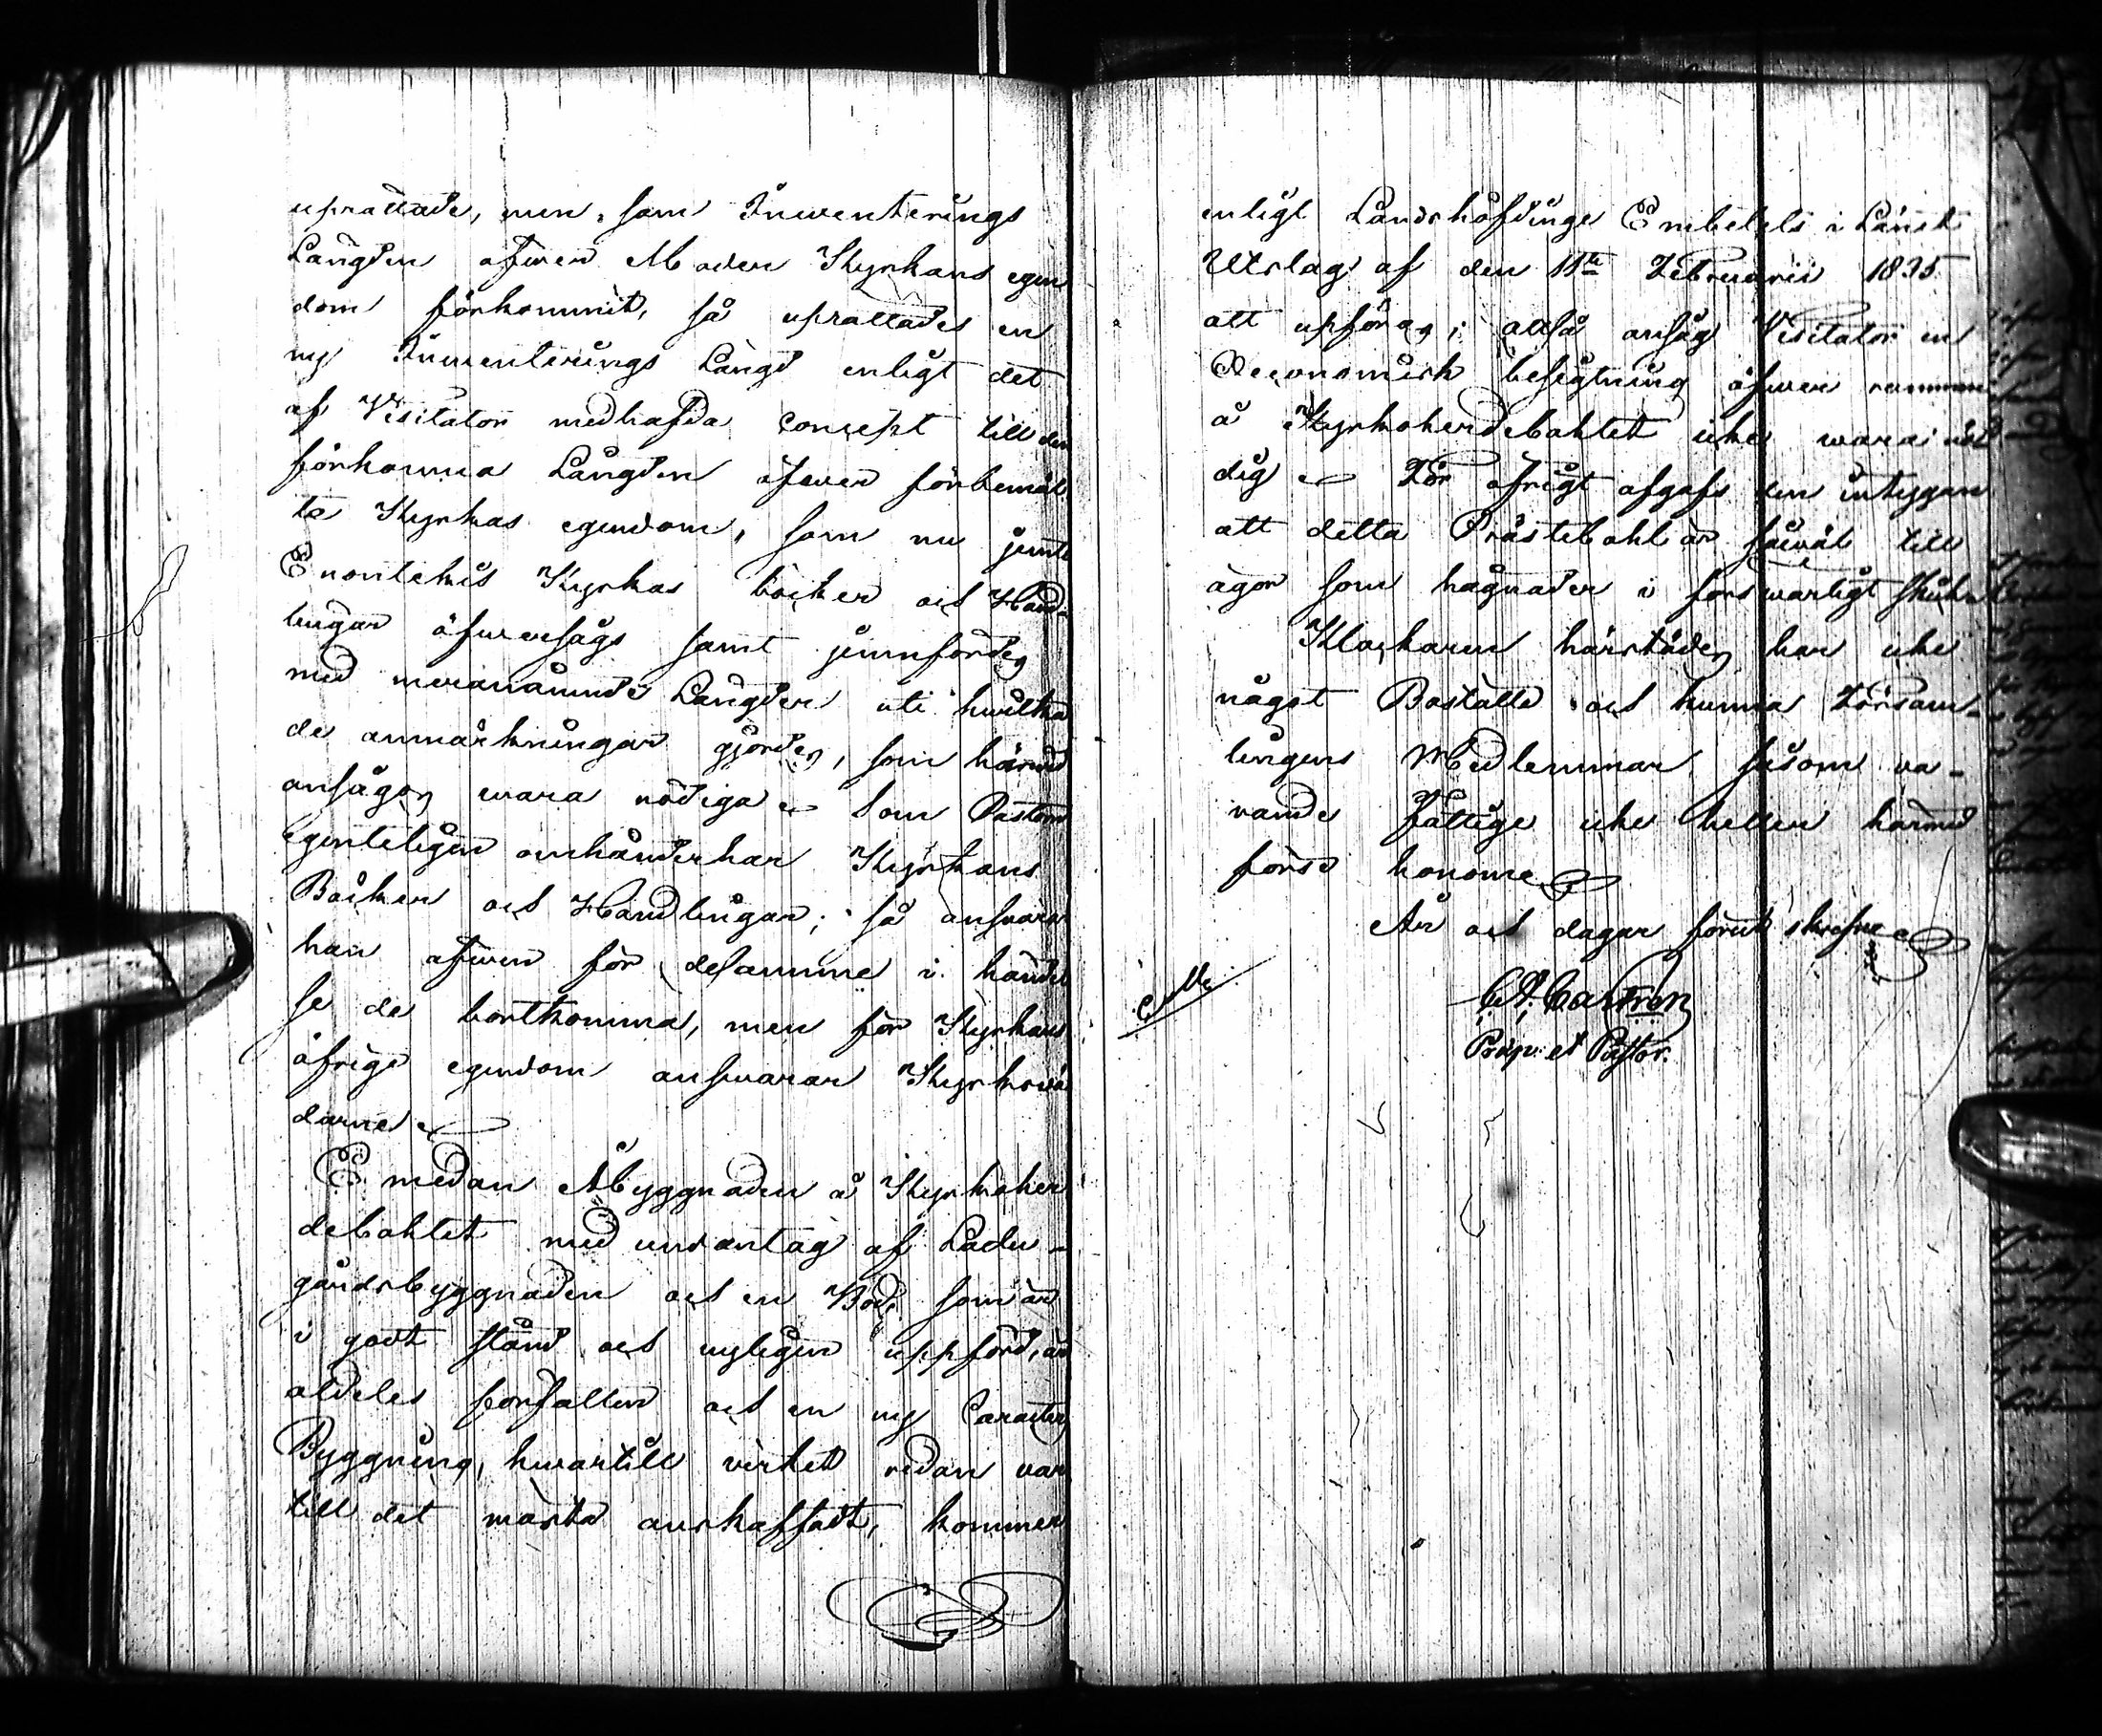 uprättade, men som Inwenterings
Längden öfwer Moder Kyrkans egen
dom förkommit, så uprättades en
ny Inwenterings Längd enligt det
af Visitator medhafda concept till den
förkomna Längden öfwer förbemäl
ta Kyrkas egendom, som nu jemte
Enontekis Kyrkas böcker och Hand-
lingar öfwersågs samt jemnfördes
med meranämnde Längder uti hwilka
de anmärkningar gjordes, som härwid
ansågos wara nödiga Som Pastorn
egenteligen omhänderhar Kyrkans
Böcker och Handlingar; så answarar
han äfwen för desamme i händel
se de bortkomma, men för Kyrkans
öfrige egendom answarar Kyrkowär
darne
Emedan Åbyggnaden å Kyrkoher
debohlet med undantag af Ladu-
gårdsbyggnaden och en Bod, som är
i godt stånd och nyligen uppförd, är
aldeles förfallen och en ny Caracters
Byggning, hwartill virket redan var
till det mästa anskaffadt, kommer
enligt Landshöfdinge Embetets i Länet
Utslag af den 11te Februarii 1835
att upföras; alltså ansåg Visitator en
Oeconomisk besigtning öfwer rummen
å Kyrkoherdebohlet icke wara nöd
dig För öfrigt afgafs den intygan
att detta Prästebohl är såwäl till
ägor som hägnader i förswarligt skick
Klockaren härstädes har icke
något Boställe och kunna Försam-
lingens Medlemmar såsom va-
rande fattige icke heller härmed
förse honom
År och dagar förut skrefne
M. A. Castrén
Præp. et Pastor.